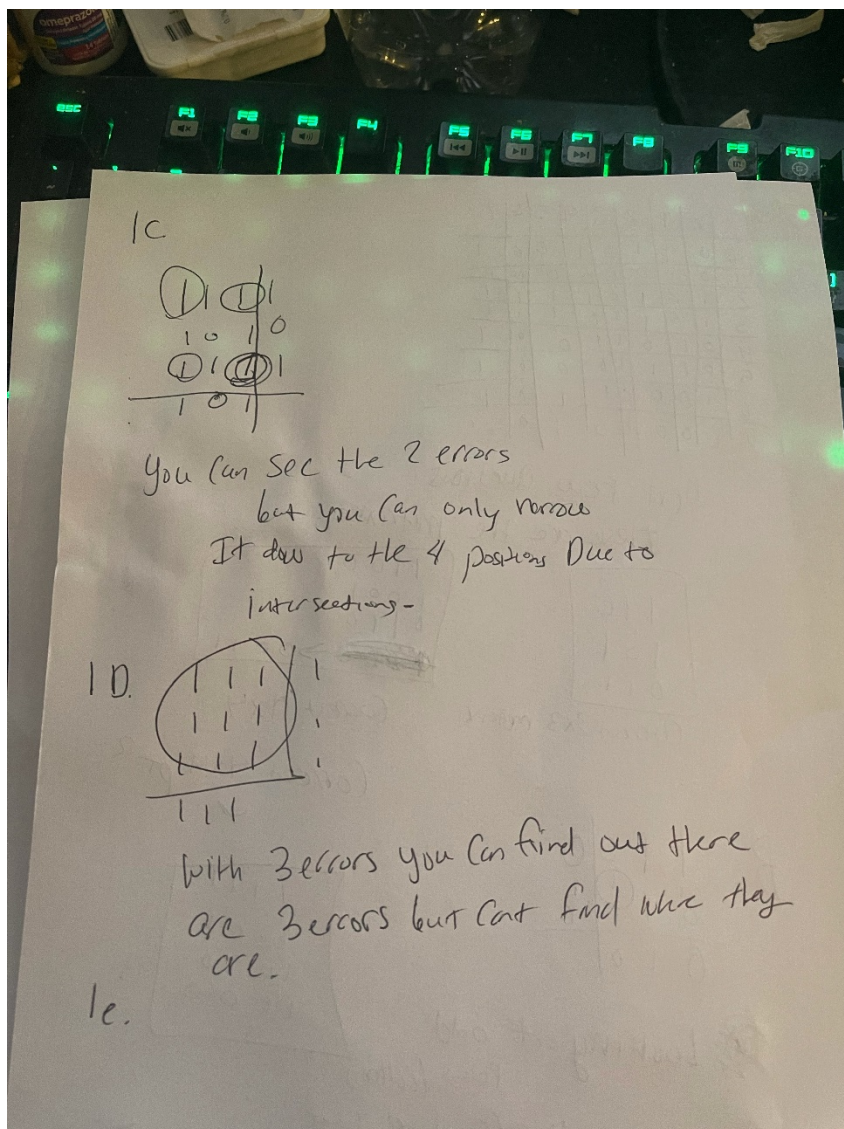 omeprazo
esc F1 F2 F3 F4 F5 F6 F7 F8 F9 F10
1c
1 1 1 1
1 0 1 0
1 1 1 1
1 0 1
you can see the 2 errors
but you can only narrow
It dow to the 4 positions Due to
intersections-
1D.
1 1 1 1
1 1 1 1
1 1 1 1
1 1 1
with 3 errors you can find out there
are 3 errors but cant find whre they
are.
1e.